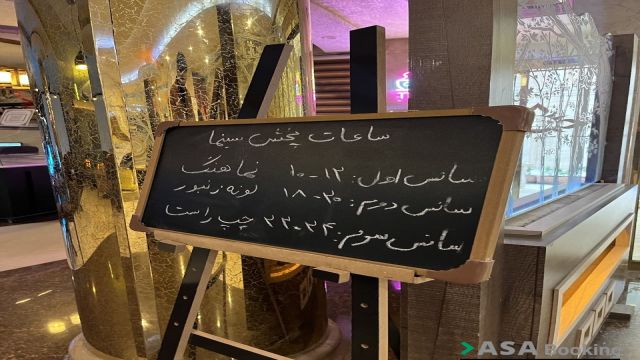 ساعات پخش سینما
سانس اول: ۱۲-۱۰ نماهنگ
سانس دوم: ۲۰-۱۸ لونه زنبور
سانس سوم: ۲۴-۲۲ چپ راست
ASA Booking